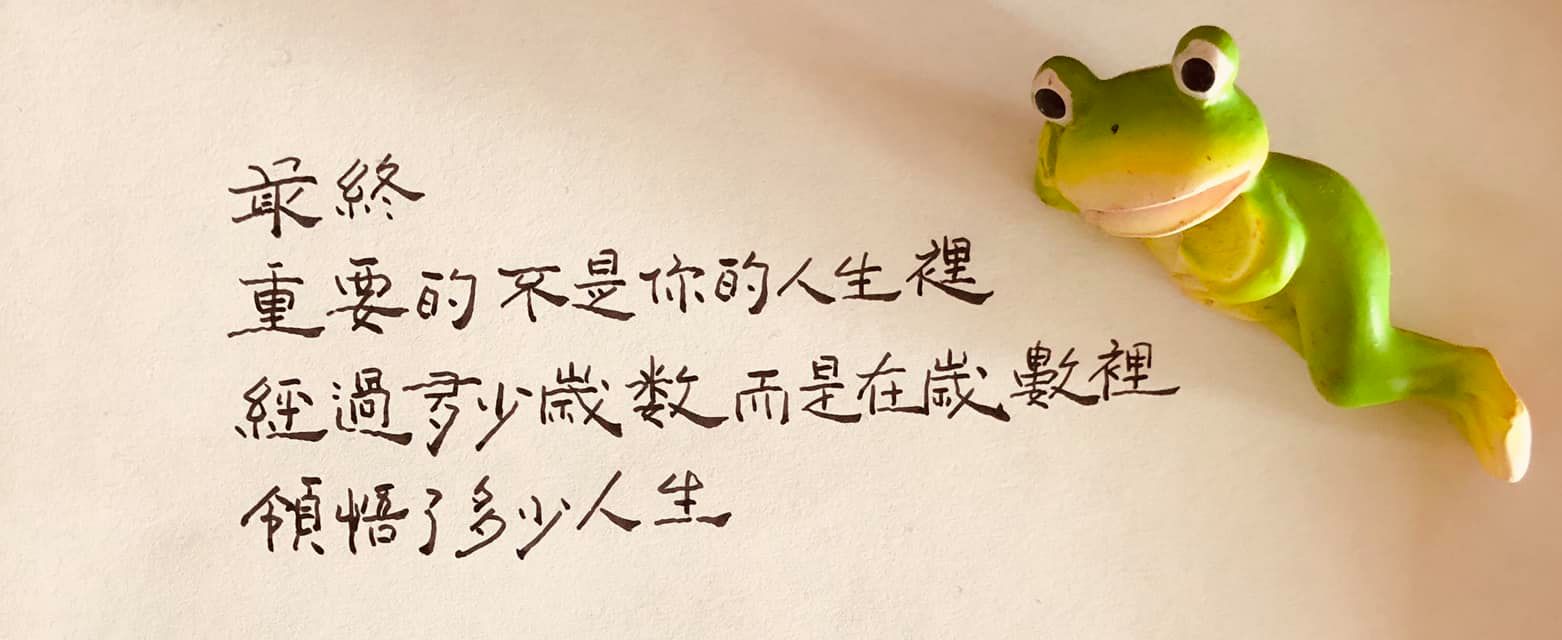 最終
重要的不是你的人生裡
經過多少歲数而是在歲數裡
領悟了多少人生